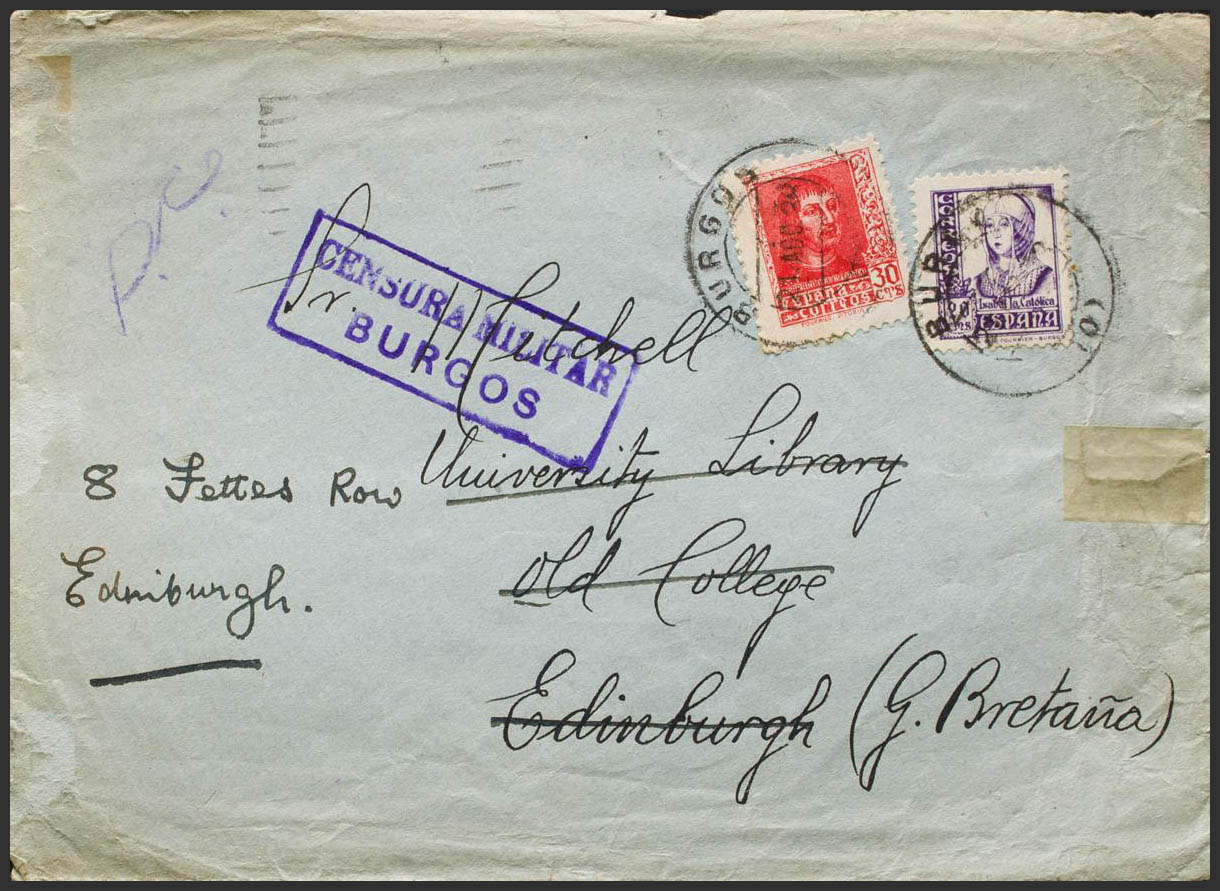 P.C.
CENSURA MILITAR
BURGOS
BURGOS
30
CTS
ESPAÑA
CORREOS
BUR
Isabel la Católica
ESPAÑA
FOURNIER - BURGOS
Sr. Mitchell
University Library
Old College
Edinburgh (G. Bretaña)
8 Fettes Row
Edinburgh.